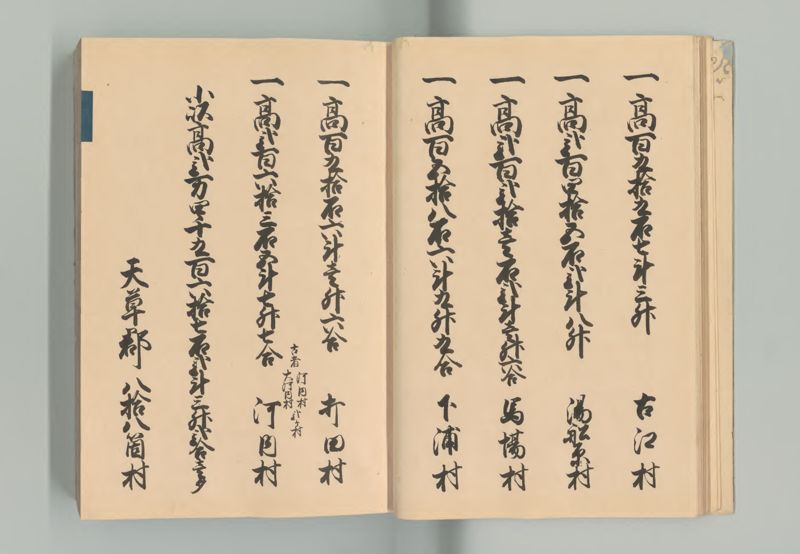 一高百九拾九石七斗三升 古江村
一高弐百四拾五石弐斗八升 湯舩原村
一高弐百弐拾壱石弐斗三升六合 馬場村
一高百五拾八石六斗九升九合 下浦村
一高百九拾石六斗壱升六合 打田村
一高弐百六拾三石五斗七升七合 河内村
古者 河内村 弐ケ村
大河内村
小以高弐万四千九百六拾七石弐斗三升弐合壱夕
天草郡 八拾八箇村